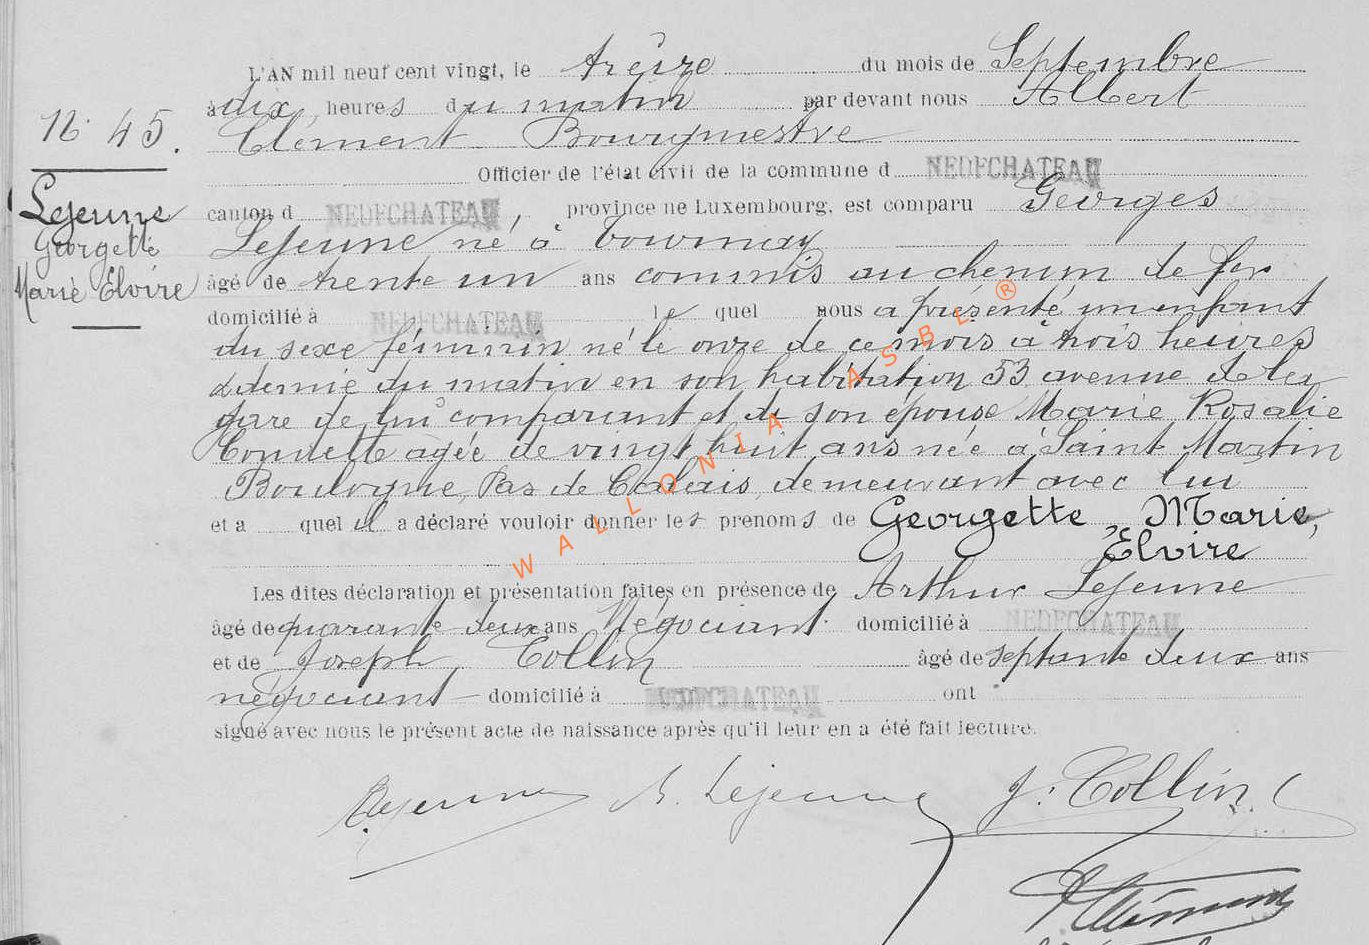 L'AN mil neuf cent vingt, le treize du mois de Septembre
à dix heures du matin par devant nous Albert
N° 45.
Clément Bourgmestre
Officier de l'état civil de la commune d NEUFCHATEAU
Lejeune
Georgette
Marie Elvire
canton d NEUFCHATEAU, province de Luxembourg, est comparu Georges
Lejeune né à Tournay
âgé de trente un ans commis au chemin de fer
domicilié à NEUFCHATEAU le quel nous a présenté un enfant
du sexe féminin né le onze de ce mois à trois heures
& demie du matin en son habitation 53 avenue de la
gare de lui comparant et de son épouse Marie Rosalie
âgée de vingt huit ans née à Saint Martin
Boulogne, Pas de Calais, demeurant avec lui
et a quel il a déclaré vouloir donner les prenoms de Georgette, Marie,
Elvire
Les dites déclaration et présentation faites en présence de Arthur Lejeune
âgé de quarante deux ans Négociant domicilié à NEUFCHATEAU
et de Joseph Collin âgé de septante deux ans
négociant domicilié à NEUFCHATEAU ont
signé avec nous le présent acte de naissance après qu'il leur en a été fait lecture.
Lejeune A. Lejeune J. Collin
AClément
WALLONIA ASBL ®